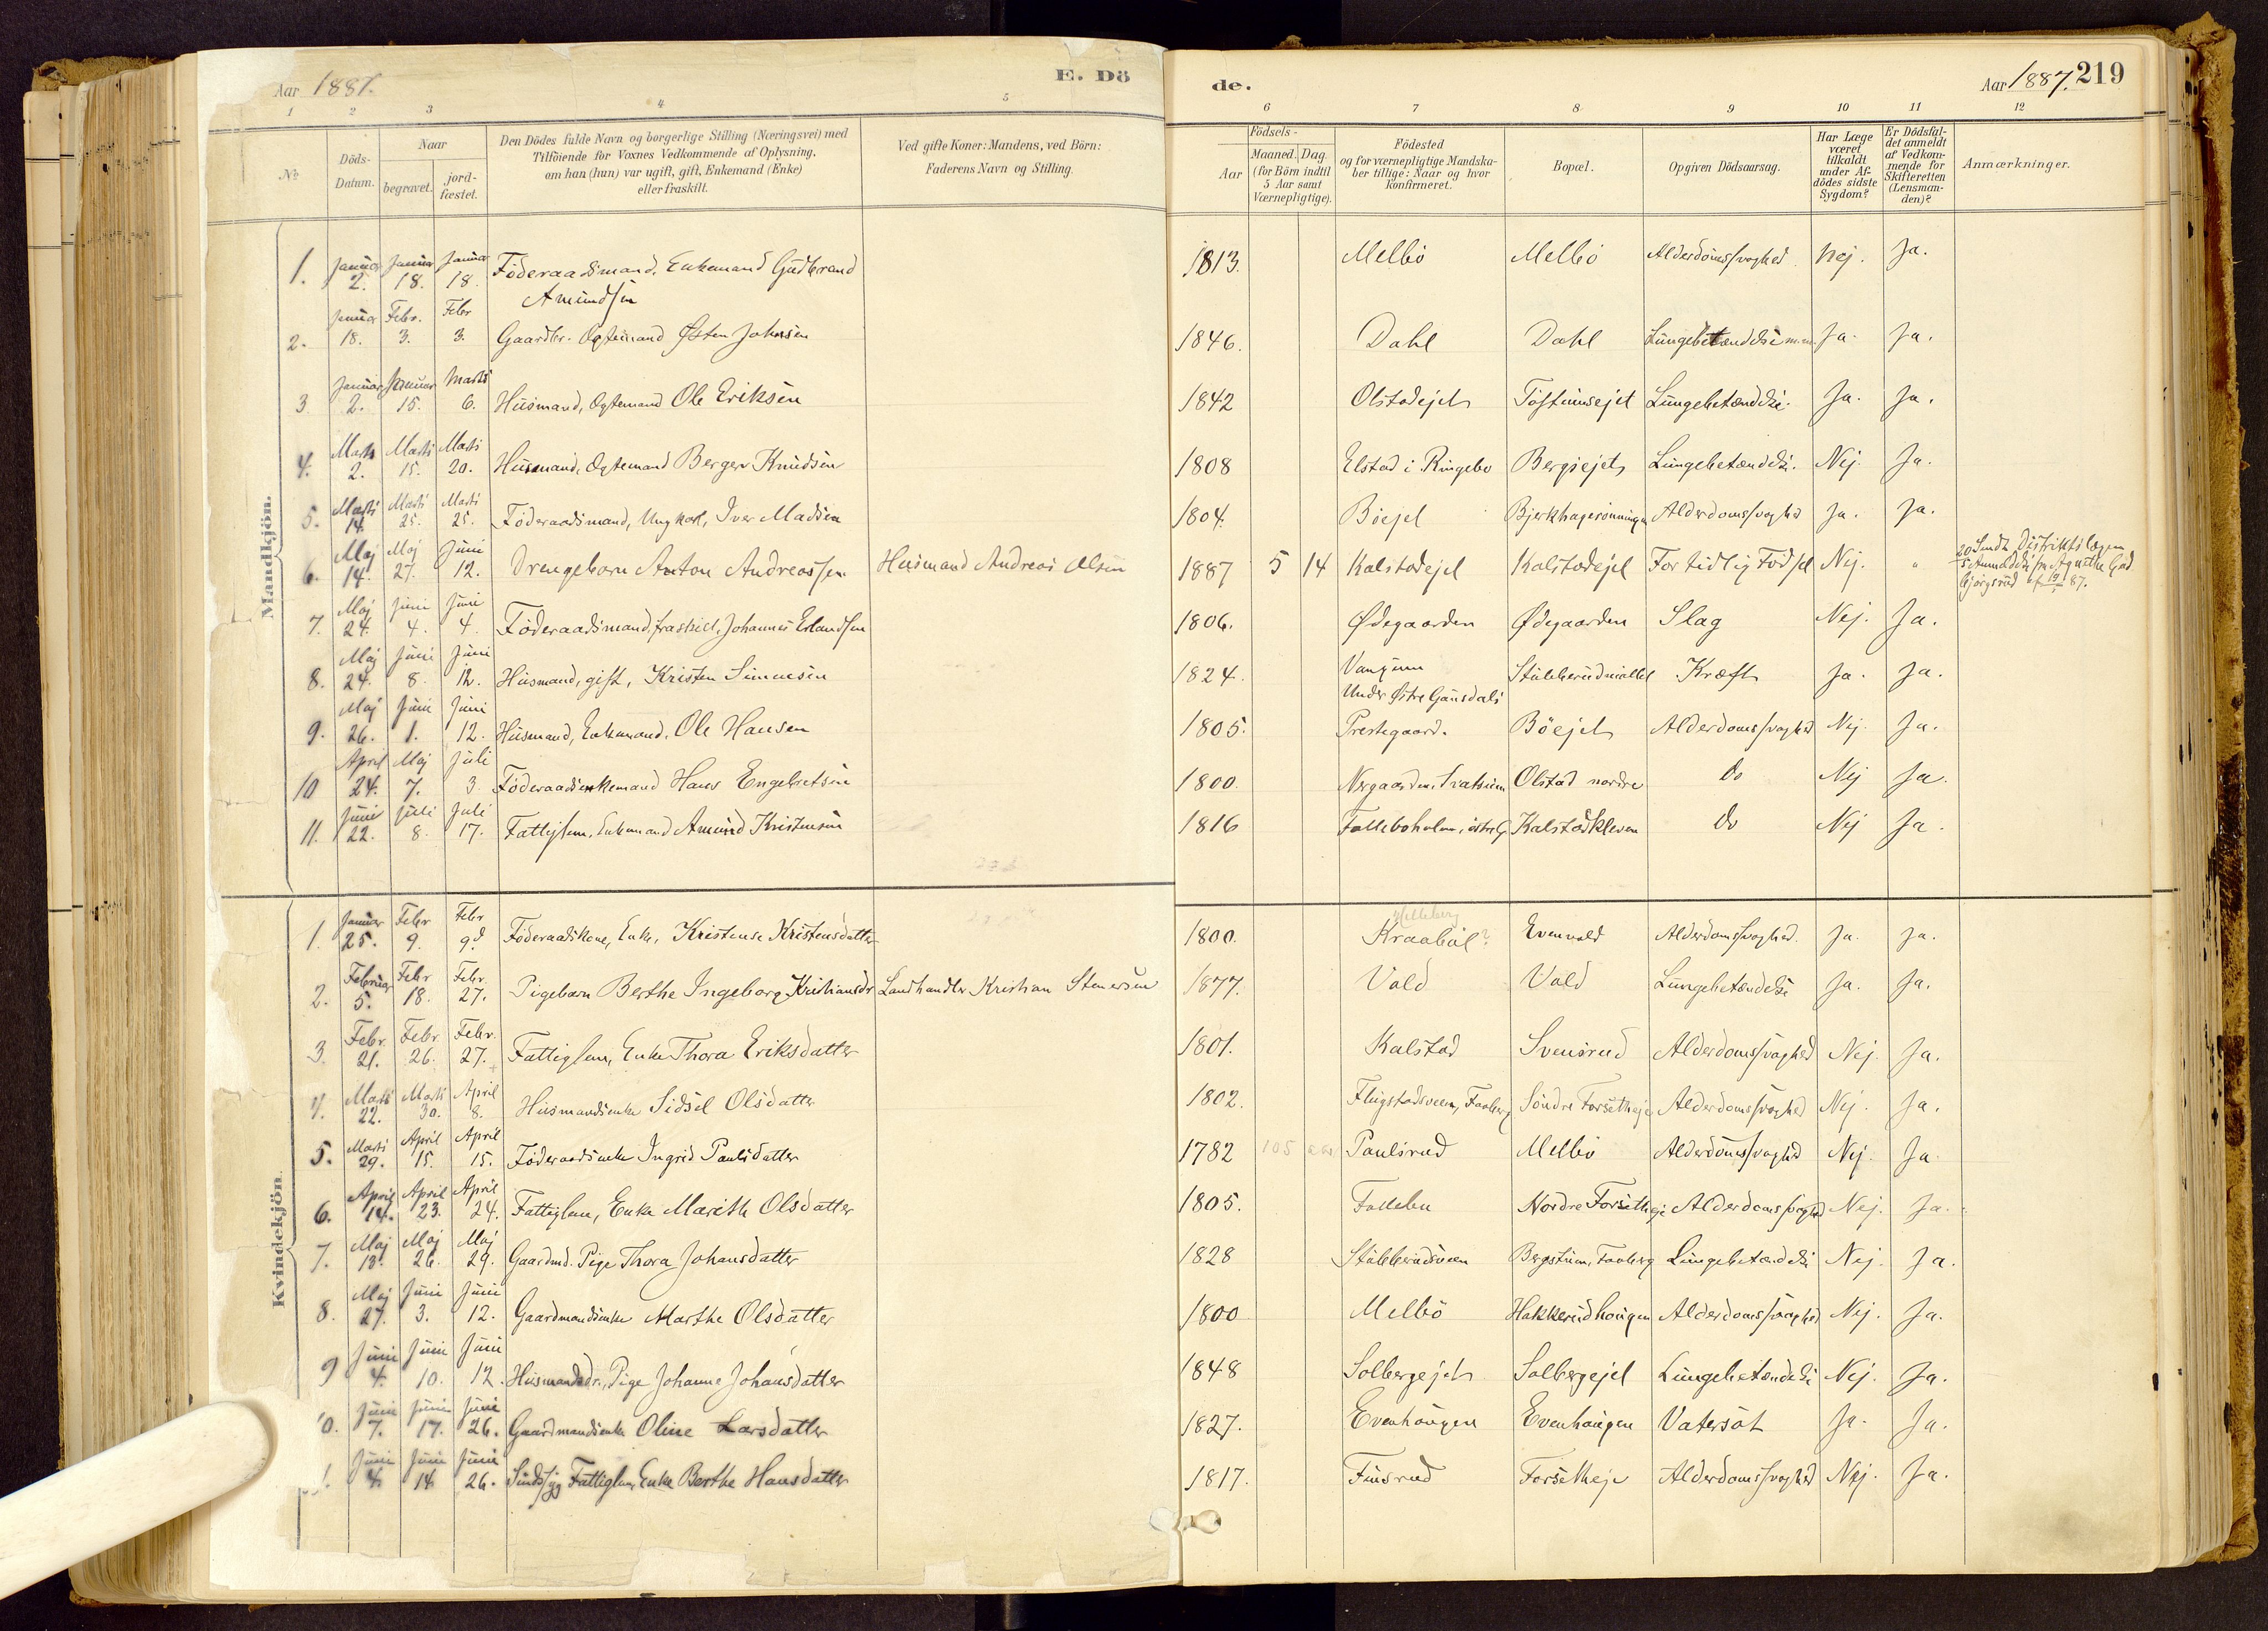 Aar 1887.
E. Dö
de.
Aar 1887. 219
1 2 3 4 5 6 7 8 9 10 11 12
No
Döds-Datum.
Naar
begravet.
jord-fæstet.
Den Dödes fulde Navn og borgerlige Stilling (Næringsvei) med
Tilföiende for Voxnes Vedkommende af Oplysning,
om han (hun) var ugift, gift, Enkemand (Enke)
eller fraskilt.
Ved gifte Koner: Mandens, ved Börn:
Faderens Navn og Stilling.
Födsels-
Aar
Maaned. Dag.
(for Börn indtil
5 Aar samt
Værnepligtige).
Födested
og for værnepligtige Mandska-
ber tillige: Naar og hvor
konfirmeret.
Bopæl.
Opgiven Dödsaarsag.
Har Læge
været
tilkaldt
under Af-
dödes sidste
Sygdom?
Er Dödsfal-
det anmeldt
af Vedkom-
mende for
Skifteretten
(Lensman-
den)?
Anmærkninger.
Mandkjön.
1. Januar 2. Januar 18. Januar 18. Föderaadsmand, Enkemand Gudbrand
Amundsen 1813. Mellbö Mellbö Alderdomssvaghed Nej. Ja.
2. Januar 18. Febr. 3. Febr 3. Gaardbr. Ogtemand Østen Johnsen 1846. Dahl Dahl Lungebetændelse m.m. Ja. Ja.
3. Januar 2. Januar 15. Marts 6. Husmand, Ogtemand Ole Eriksen 1842 Olstadejet Tostumsejet Lungebetændelse. Ja. Ja.
4. Marts 2. Marts 15. Marts 20. Husmand, Ogtemand Berger Knudsen 1808 Elstad i Ringebo Bergsejet Lungebetændelse. Nej. Ja.
5. Marts 14. Marts 25. Marts 25. Föderaadsmand, Ungkarl, Iver Madsen 1804. Böejet Bjerkhagerönningen Alderdomssvaghed Ja. Ja.
6. Maj 14. Maj 27. Juni 12. Drengebarn Anton Andreassen Husmand Andreas Olsen 1887 5 14 Kalstadejet Kalstadejet For tidlig Födsel Nej. "
20/5 Sendt Distriktslægen
Anmeldelse fra Agnethe Gud
björgsrud af 19/5 87.
7. Maj 24. Juni 4. Juni 4. Föderaadsmand, fraskilt, Johannes Erlandsen 1806. Ødegaarden Ødegaarden Slag Nej. Ja.
8. Maj 24. Juni 8. Juni 12. Husmand, gift, Kristen Simensen 1824. Vangen
Under Østre Gausdals Stubberudmoellel Kræft Ja. Ja.
9. Maj 26. Juni 1. Juni 12. Husmand, Enkemand, Ole Hansen 1805. Prestegaard. Böejet Alderdomssvaghed Nej. Ja.
10 April 24. Maj 7. Juli 3. Föderaadsenkemand Hans Engebretsen 1800. Nergaarden, Olstad nordre do Nej Ja.
11. Juni 22. Juli 8. Juli 17. Fattiglem, Enkemand Amund Kristensen 1816 Folleboholm, östre G. Kalstadkleven do Nej Ja.
Kvindekjön.
1. Januar 25. Febr 9. Febr 9. Föderaadskone, Enke, Kristense Kristensdatter 1800. Kraaböl? Evenvold Alderdomssvaghed. Ja. Ja.
2. Februar 5. Febr 18. Febr. 27. Pigebarn Berthe Ingeborg Kristiansdr Landhandler Kristian Stenersen 1877. Vold Vold Lungebetændelse Ja. Ja.
3. Febr. 21. Febr. 26. Febr. 27. Fattiglem, Enke Thora Eriksdatter 1801. Kalstad Svensrud Alderdomssvaghed Nej. Ja.
4. Marts 22. Marts 30. April 8. Husmandsenke Sidsel Olsdatter 1802. Flugstadsveen, Faaberg Söndre Forsetheje Alderdomssvaghed Nej. Ja.
5. Marts 29. April 15. April 15. Föderaadsenke Ingrid Paulsdatter 1782 105 aar Paulsrud Mellbö Alderdomssvaghed Nej. Ja.
6. April 14. April 23. April 24. Fattiglem, Enke Marithe Olsdatter 1805. Follebu Nordre Forsetheje Alderdomssvaghed Nej. Ja.
7. Maj 18. Maj 26. Maj 29. Gaardmd. Pige Thora Johansdatter 1828 Stubberudsveen Bergstuen, Faaberg Lungebetændelse Nej. Ja.
8. Maj 27. Juni 3. Juni 12. Gaardmandsenke Marthe Olsdatter 1800 Mellbö Hakkerudhougen Alderdomssvaghed Nej. Ja.
9 Juni 4. Juni 10. Juni 12. Husmandsdr., Pige Johanne Johansdatter 1848 Solbergejet Solbergejet Lungebetændelse Nej. Ja.
10. Juni 7. Juni 17. Juni 26. Gaardmandsenke Oline Larsdatter 1827. Evenhougen Evenhougen Vatersot Ja. Ja.
Juni 4. Juni 14. Juni 26. Sindssyg Fattiglem, Enke Berthe Hansdatter 1817. Finsrud Forsetheje Alderdomssvaghed Nej. Ja.